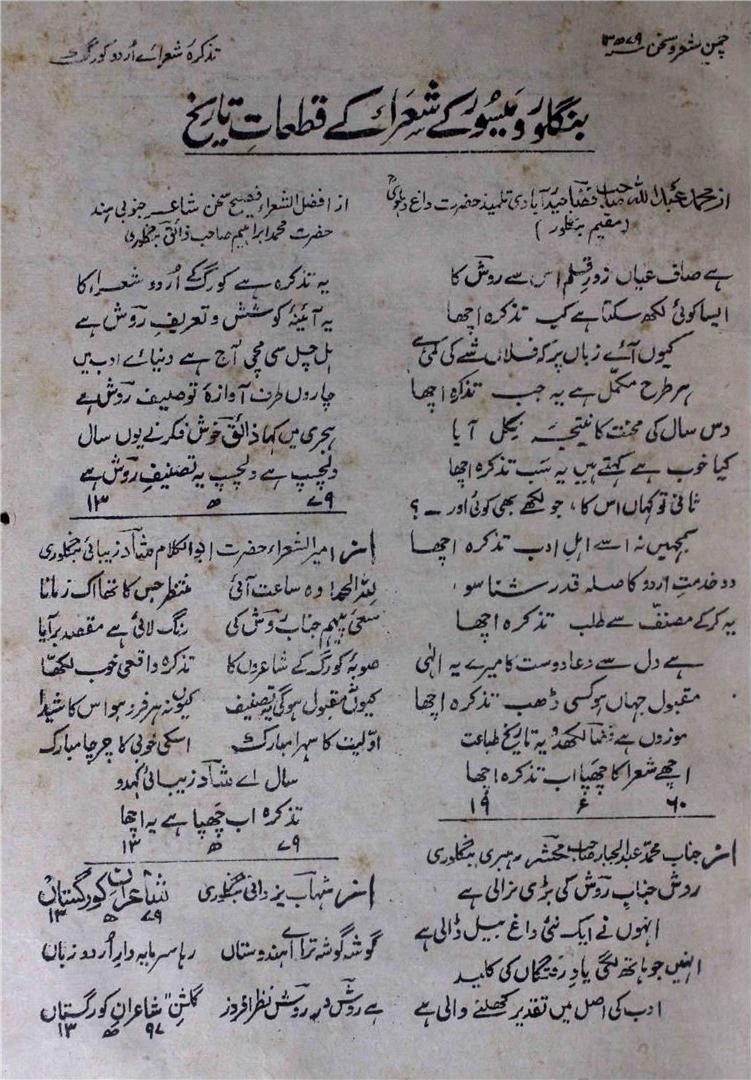 چمنِ شعر و سخن ۱۳۷۹ھ
تذکرہ شعرائے اُردو کورگ
بنگلور و میسور کے شعراء کے قطعاتِ تاریخ
از محمد عبداللہ صاحب فضاؔ حیدرآبادی تلمیذ حضرت داغ دہلوی
(مقیم بنگلور)
ہے صاف عیاں زورِ قلم اس سے روشؔ کا
ایسا کوئی لکھ سکتا ہے کب تذکرہ اچھا
کیوں آئے زباں پر کہ فلاں شے کی کمی ہے
ہر طرح مکمّل ہے یہ جب تذکرہ اچھا
دس سال کی محنت کا نتیجہ نکل آیا
کیا خوب ہے کہتے ہیں یہ سب تذکرہ اچھا
ثانی تو کہاں اس کا، جو لکھے بھی کوئی اور ۔ ؟
سمجھیں نہ اسے اہلِ ادب تذکرہ اچھا
دو خدمتِ اردو کا صلہ قدر شناسو
یہ کر کے مصنّف سے طلب تذکرہ اچھا
ہے دل سے دعا دوست کا میرے یہ الٰہی
مقبولِ جہاں ہو کسی ڈھب تذکرہ اچھا
موزوں ہے فضاؔ لکھدو یہ تاریخِ طباعت
اچھے شعرا کا چھپا اب تذکرہ اچھا
۱۹ ء ۶۰
از جناب محمد عبدالجبار صاحب محشرؔ بنگلوری
روش جنابِ روشؔ کی بڑی نرالی ہے
انہوں نے ایک نئی داغ بیل ڈالی ہے
انہیں جو ہاتھ لگی یادِ رفتگاں کی کلید
ادب کی اصل میں تقدیر کھلنے والی ہے
از افضل الشعراء فصیح سخن شاعرِ جنوبی ہند
حضرت محمد ابراہیم صاحب ذائقؔ بنگلوری
یہ تذکرہ ہے کورگ کے اُردو شعراء کا
یہ آئینۂ کوشش و تعریفِ روشؔ ہے
ہل چل سی مچی آج ہے دنیائے ادب میں
چاروں طرف آوازۂ توصیفِ روشؔ ہے
ہجری میں کہا ذائقؔ خوش فکر نے یوں سال
دلچسپ ہے دلچسپ یہ تصنیفِ روشؔ ہے
۱۳ ھ ۷۹
از امیر الشعراء حضرت ابوالکلام شادؔ زیبائی بنگلوری
للہ الحمد وہ ساعت آئی منتظر جس کا تھا اک زمانا
سعئ پیہم جنابِ روشؔ کی رنگ لائی ہے مقصد بر آیا
صوبۂ کورگ کے شاعروں کا تذکرہ واقعی خوب لکھا
کیوں نہ مقبول ہوگی یہ تصنیف کیوں نہ ہر فرد ہو اس کا شیدا
اوّلیت کا سہرا مبارک اسکی خوبی کا چرچا مبارک
سال اے شادؔ زیبائی کہدو
تذکرہ اب چھپا ہے یہ اچھا
۱۳ ھ ۷۹
از شہابؔ یزدانی بنگلوری شاعرانِ کورگستان
۱۳ ھ ۷۹
گوشہ گوشہ ترا اے ہندوستاں رہا سرمایہ دارِ اُردو زباں
ہے روشؔ در روش نظر افروز گلشنِ "شاعرانِ کورگستاں
۱۳ ھ ۹۷